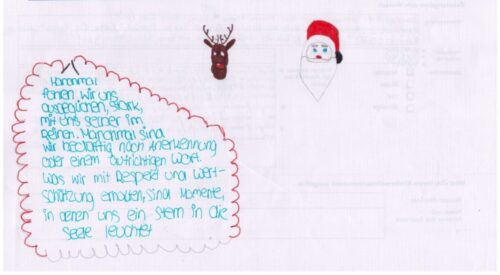 Manchmal
fühlen wir uns
ausgeglichen, stark,
mit uns selber im
Reinen. Manchmal sind
wir bedürftig nach Anerkennung
oder einem aufrichtigen Wort.
Was wir mit Respekt und Wert-
schätzung erhalten, sind Momente,
in denen uns ein Stern in die
Seele leuchtet